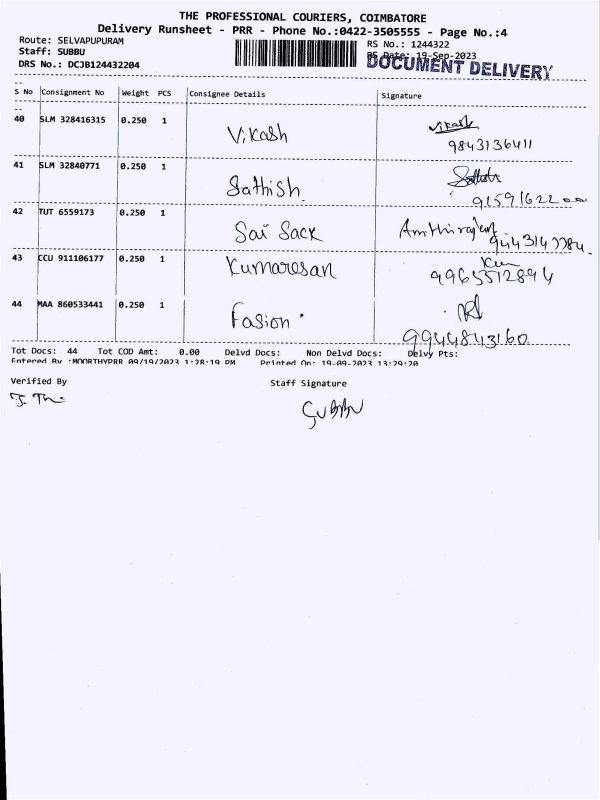 THE PROFESSIONAL COURIERS, COIMBATORE
Delivery Runsheet - PRR - Phone No.:0422-3505555 - Page No.:4
Route: SELVAPUPURAM
RS No.: 1244322
Staff: SUBBU
RS Date: 19-Sep-2023
DOCUMENT DELIVERY
DRS No.: DCJB124432204
S No Consignment No Weight PCS Consignee Details Signature
40 SLM 328416315 0.250 1 Vikash Vikash
9843136411
41 SLM 32840771 0.250 1 Sathish Sathish
42 TUT 6559173 0.250 1 Sai Sack
43 CCU 911106177 0.250 1 Kumaresan
9965512894
44 MAA 860533441 0.250 1 Fasion
9944843160
Tot Docs: 44 Tot COD Amt: 0.00 Delvd Docs: Non Delvd Docs: Delvy Pts:
Entered By :MOORTHYPRR 09/19/2023 1:28:19 PM Printed On: 19-09-2023 13:29:20
Verified By Staff Signature
SUBBU